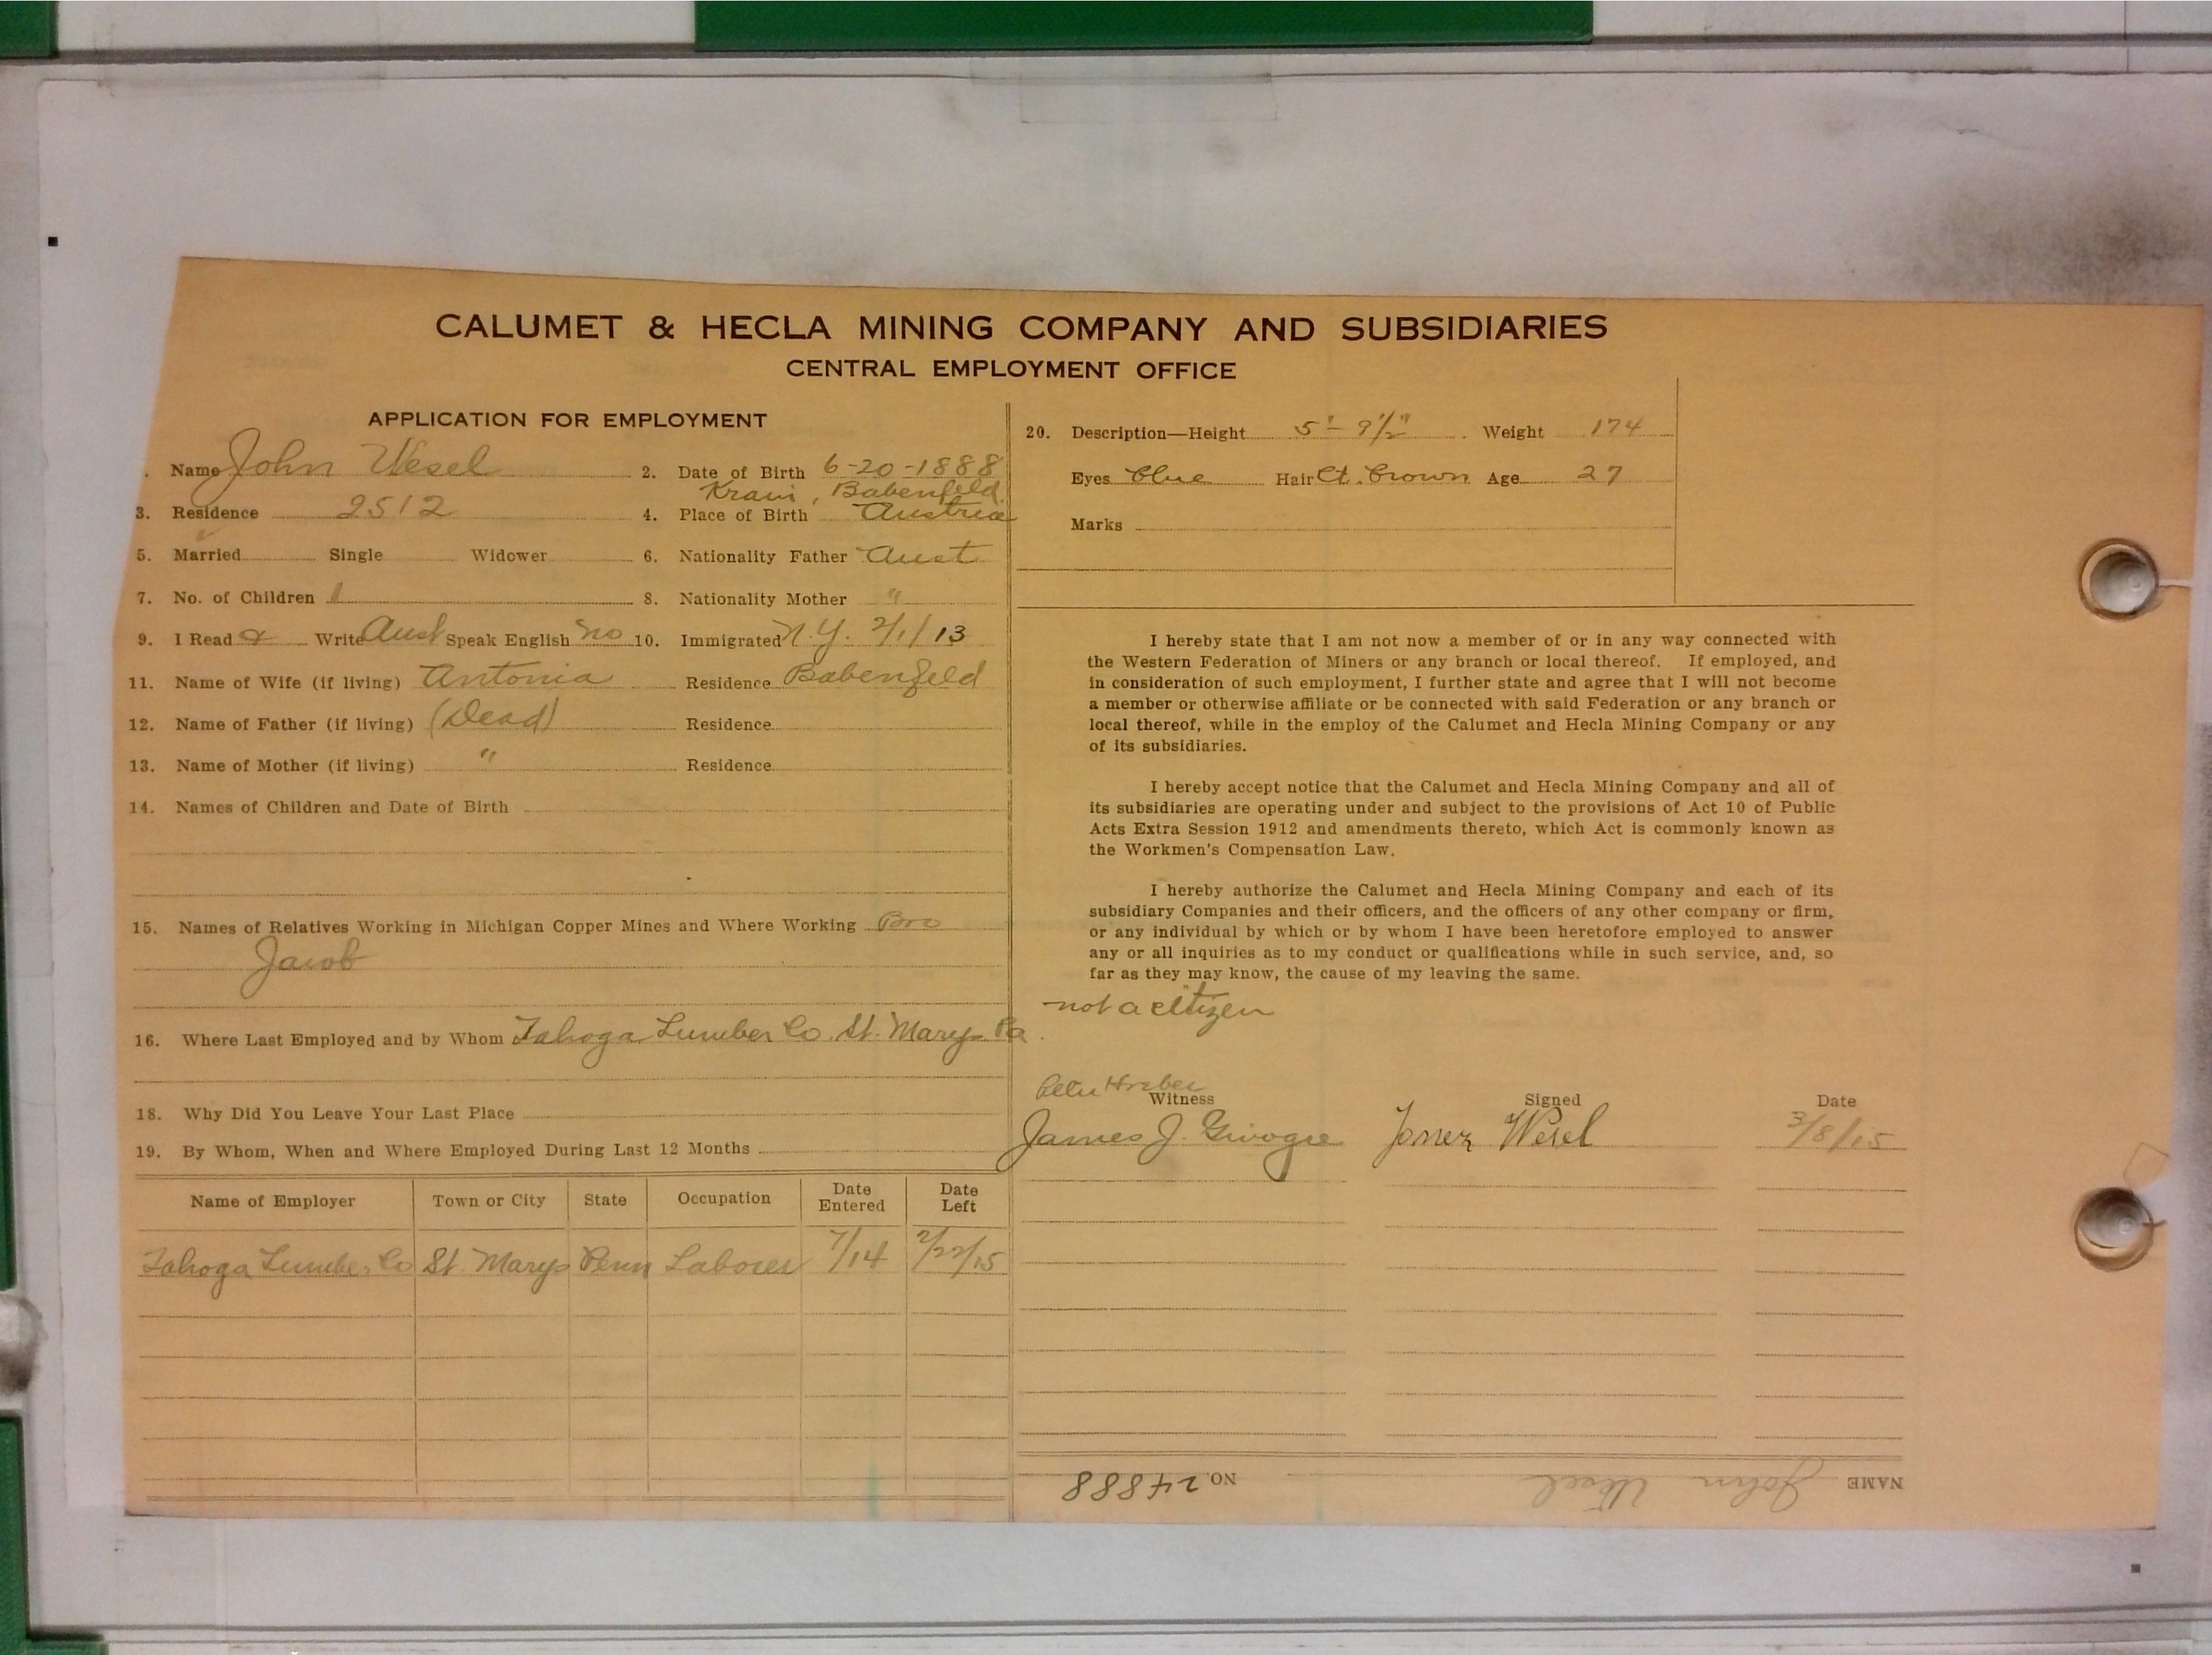 CALUMET & HECLA MINING COMPANY AND SUBSIDIARIES
CENTRAL EMPLOYMENT OFFICE
APPLICATION FOR EMPLOYMENT
. Name John Wesel 2. Date of Birth 6-20-1888
Krain, Babenfeld
3. Residence 2512 4. Place of Birth Austria
5. Married Single Widower 6. Nationality Father Aust
7. No. of Children 1 8. Nationality Mother "
9. I Read & Write Aust Speak English no 10. Immigrated N.Y. 2/1/13
11. Name of Wife (if living) Antonia Residence Babenfeld
12. Name of Father (if living) (Dead) Residence
13. Name of Mother (if living) " Residence
14. Names of Children and Date of Birth
15. Names of Relatives Working in Michigan Copper Mines and Where Working Bro
Jacob
16. Where Last Employed and by Whom Tahoga Lumber Co. St. Marys Pa
18. Why Did You Leave Your Last Place
19. By Whom, When and Where Employed During Last 12 Months
Name of Employer Town or City State Occupation Date Entered Date Left
Tahoga Lumber Co St. Marys Penn Laborer 7/14 2/22/15
20. Description—Height 5'-9½" Weight 174
Eyes Blue Hair Lt. Brown Age 27
Marks
I hereby state that I am not now a member of or in any way connected with
the Western Federation of Miners or any branch or local thereof. If employed, and
in consideration of such employment, I further state and agree that I will not become
a member or otherwise affiliate or be connected with said Federation or any branch or
local thereof, while in the employ of the Calumet and Hecla Mining Company or any
of its subsidiaries.
I hereby accept notice that the Calumet and Hecla Mining Company and all of
its subsidiaries are operating under and subject to the provisions of Act 10 of Public
Acts Extra Session 1912 and amendments thereto, which Act is commonly known as
the Workmen's Compensation Law.
I hereby authorize the Calumet and Hecla Mining Company and each of its
subsidiary Companies and their officers, and the officers of any other company or firm,
or any individual by which or by whom I have been heretofore employed to answer
any or all inquiries as to my conduct or qualifications while in such service, and, so
far as they may know, the cause of my leaving the same.
not a citizen
Witness Signed Date
James J. Wesel 3/8/15
NAME John Wesel NO. 24888